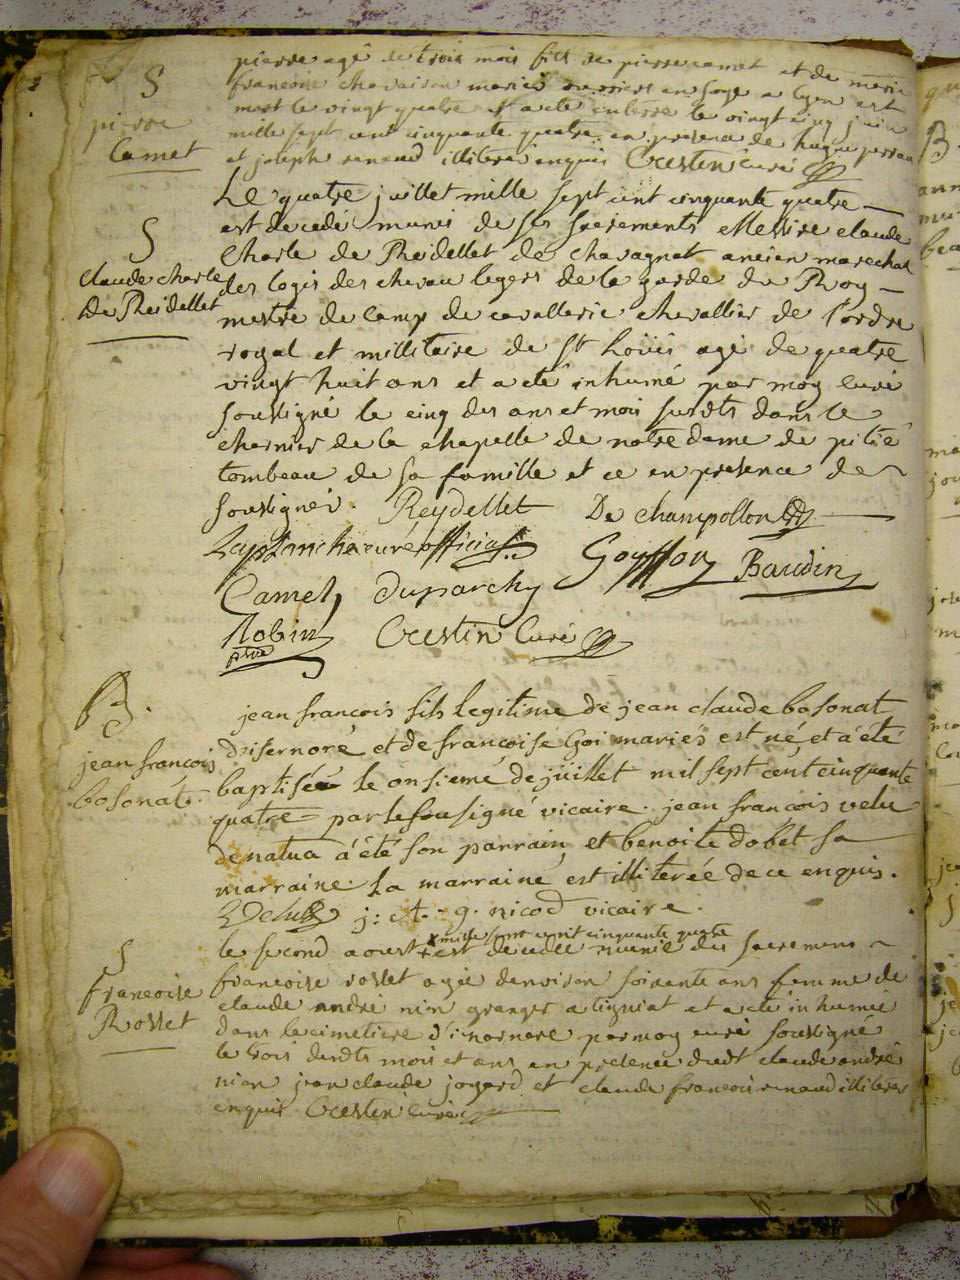 S
pierre
Camet
pierre agé de trois mois fils de pierre camet et de marie
francoise chavaison mariés ouvriers en soye a lyon est
mort le vingt quatre et a eté enterré le vingt cinq juin
mille sept cent cinquante quatre en presence de hugue perrau
et joseph renaud illiteré enquis Crestin curé
S
Claude Charle
De Rheidellet
Le quatre juillet mille sept cent cinquante quatre
est decedé munis de ses sacrements Messire claude
Charle de Rheidellet de chavagnat ancien marechal
des logis des chevau legers de la garde du Roy
mestre de camp de cavallerie chevallier de l'ordre
royal et millitaire de St Loüis agé de quatre
vingt huit ans et a eté inhumé par moy curé
soussigné le cinq des ans et mois susdts dans le
charnier de la chapelle de notre dame de pitié
tombeau de sa famille et ce en presence de
soussignés Reydellet De champollon
curé official Gouffon Baudin
Camet duparchy
Robin Crestin Curé
ptre
B.
jean francois
bosonat.
jean francois fils legitime de jean claude bosonat
d'isernore et de francoise Goi mariés est né, et a été
baptisé le onsieme de juillet mil sept cent cinquante
quatre par le sousigné vicaire. jean françois velu
de natua a été son parrain, et benoite dobet sa
marraine. la marraine est illiterée de ce enquis.
Velu j: A. g. nicod vicaire.
S
francoise
Rosset
mille sept cent cinquante quatre
le second aoust est decedée munie des sacremens
francoise rosset agée denviron soixante ans femme de
claude andré nin granger a tigniat et a eté inhumée
dans le cimetiere d'isernore par moy curé soussigné
le trois desdts mois et ans en presence dudt claude andré
nion jean claude joyard et claude francois renaud illiterés
enquis Crestin curé